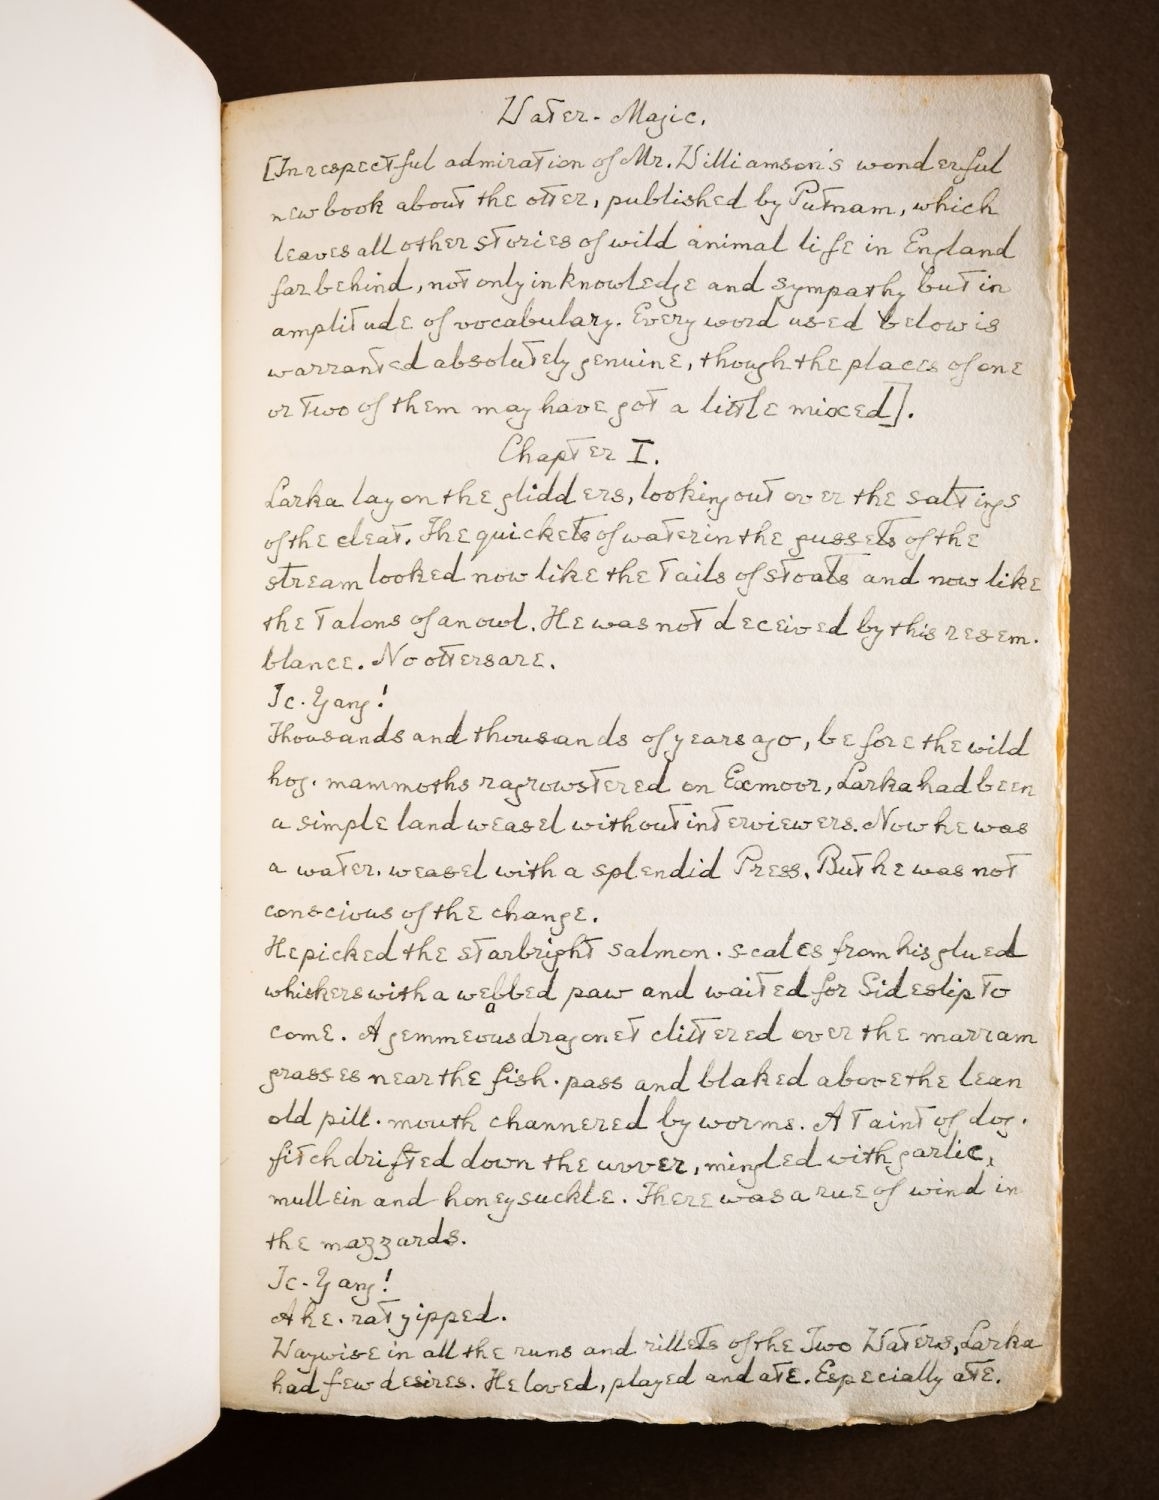 Water-Magic.
[In respectful admiration of Mr. Williamson's wonderful
new book about the otter, published by Putnam, which
leaves all other stories of wild animal life in England
far behind, not only in knowledge and sympathy but in
amplitude of vocabulary. Every word used below is
warranted absolutely genuine, though the places of one
or two of them may have got a little mixed].
Chapter I.
Larka lay on the glidders, looking out over the saltings
of the cleat. The quickets of water in the gussets of the
stream looked now like the tails of stoats and now like
the talons of an owl. He was not deceived by this resem-
blance. No otters are.
Ic-Yang!
Thousands and thousands of years ago, before the wild
hog-mammoths ragrowstered on Exmoor, Larka had been
a simple land weasel without interviewers. Now he was
a water-weasel with a splendid Press. But he was not
conscious of the change.
He picked the starbright salmon-scales from his glued
whiskers with a webbed paw and waited for Sideslip to
come. A gemmeous dragonet clittered over the marram
grasses near the fish-pass and blaked above the lean
old pill-mouth channered by worms. A taint of dog-
fitch drifted down the uvver, mingled with garlic,
mullein and honeysuckle. There was a rue of wind in
the mazzards.
Ic-Yang!
A ke-rat yipped.
Waywise in all the runs and rillets of the Two Waters, Larka
had few desires. He loved, played and ate. Especially ate.